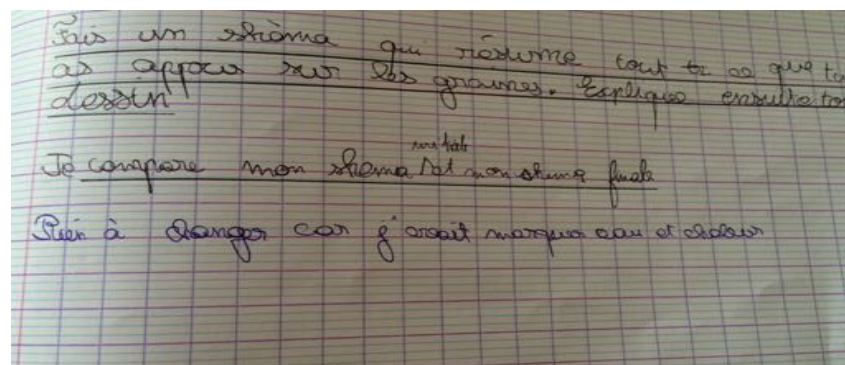 Fais un shéma qui résume tout ce que tu
as appous sur les graines. Explique ensuite ton
dessin
initial
Je compare mon shema et mon shema finale
Rien à changer car j'avait marquer eau et chaleur